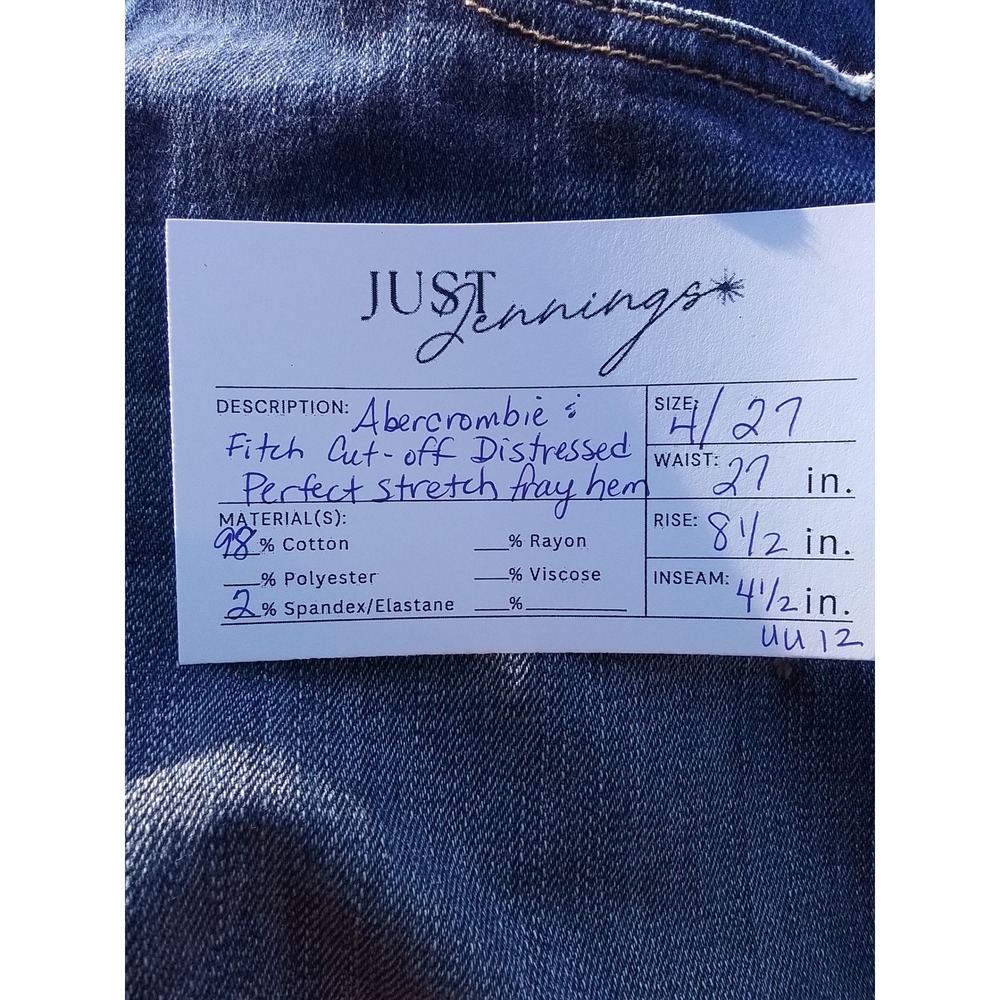 JUST Jennings*
DESCRIPTION: Abercrombie &
Fitch Cut-off Distressed
Perfect stretch fray hem
SIZE: 4/27
WAIST: 27 in.
RISE: 8 1/2 in.
INSEAM: 4 1/2 in.
MATERIAL(S):
98% Cotton __% Rayon
__% Polyester __% Viscose
2% Spandex/Elastane __%______
UU12